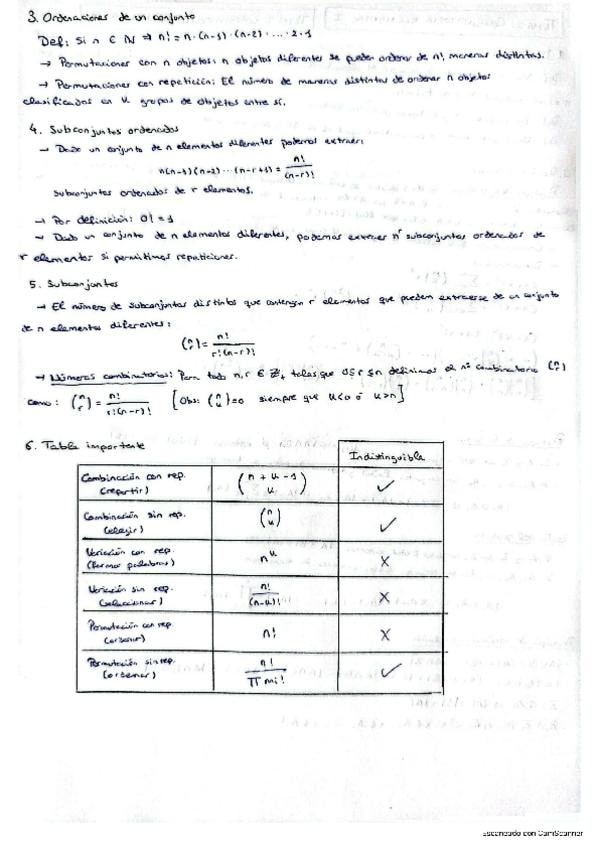 3. Ordenaciones de un conjunto
Def: Si n ∈ ℕ ⇒ n! = n·(n-1)·(n-2)·...·2·1
→ Permutaciones con n objetos: n objetos diferentes se pueden ordenar de n! maneras distintas.
→ Permutaciones con repetición: El número de maneras distintas de ordenar n objetos
clasificados en k grupos de objetos entre sí.
4. Subconjuntos ordenados
→ Dado un conjunto de n elementos diferentes podemos extraer:
n(n-1)(n-2)···(n-r+1) = n!/(n-r)!
subconjuntos ordenados de r elementos.
→ Por definición: 0! = 1
→ Dado un conjunto de n elementos diferentes, podemos extraer n^r subconjuntos ordenados de
r elementos si permitimos repeticiones.
5. Subconjuntos
→ El número de subconjuntos distintos que contengan r elementos que pueden extraerse de un conjunto
de n elementos diferentes:
(n r) = n!/r!(n-r)!
→ Números combinatorios: Para todo n,r ∈ ℤ+ tales que 0≤r≤n definimos el nº combinatorio (n r)
como: (n r) = n!/r!(n-r)! [Obs: (n k)=0 siempre que k<0 ó k>n]
6. Tabla importante
Indistinguible
Combinación con rep. (repartir) (n+k-1 k) ✓
Combinación sin rep. (elegir) (n k) ✓
Variación con rep. (formar palabras) n^k X
Variación sin rep. (seleccionar) n!/(n-k)! X
Permutación con rep. (ordenar) n! X
Permutación sin rep. (ordenar) n!/∏ mi! ✓
Escaneado con CamScanner